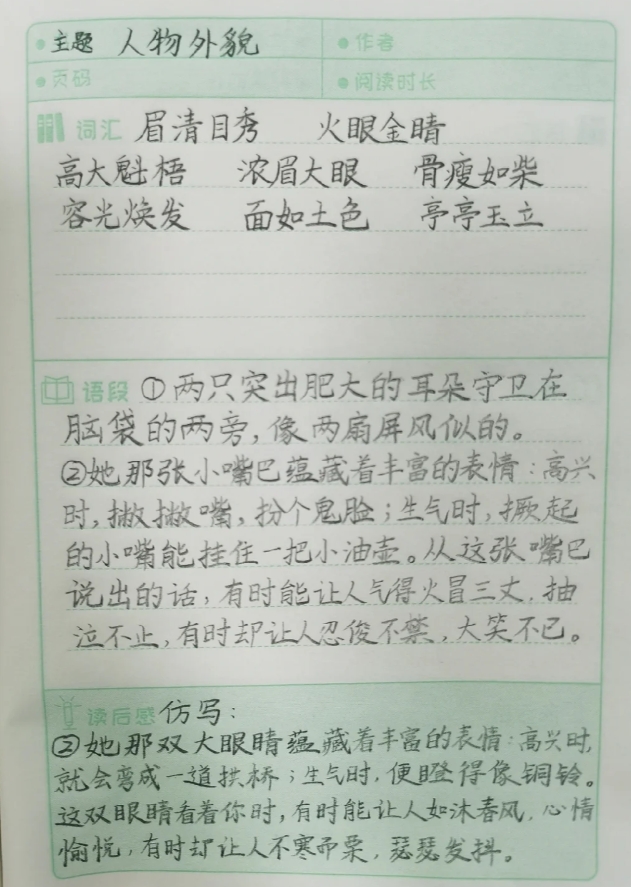 主题 人物外貌 作者
页码 阅读时长
词汇 眉清目秀 火眼金睛
高大魁梧 浓眉大眼 骨瘦如柴
容光焕发 面如土色 亭亭玉立
语段 ①两只突出肥大的耳朵守卫在
脑袋的两旁,像两扇屏风似的。
②她那张小嘴巴蕴藏着丰富的表情:高兴
时,撇撇嘴,扮个鬼脸;生气时,撅起
的小嘴能挂住一把小油壶。从这张嘴巴
说出的话,有时能让人气得火冒三丈,抽
泣不止,有时却让人忍俊不禁,大笑不已。
读后感 仿写:
②她那双大眼睛蕴藏着丰富的表情:高兴时,
就会弯成一道拱桥;生气时,便瞪得像铜铃。
这双眼睛看着你时,有时能让人如沐春风,心情
愉悦,有时却让人不寒而栗,瑟瑟发抖。